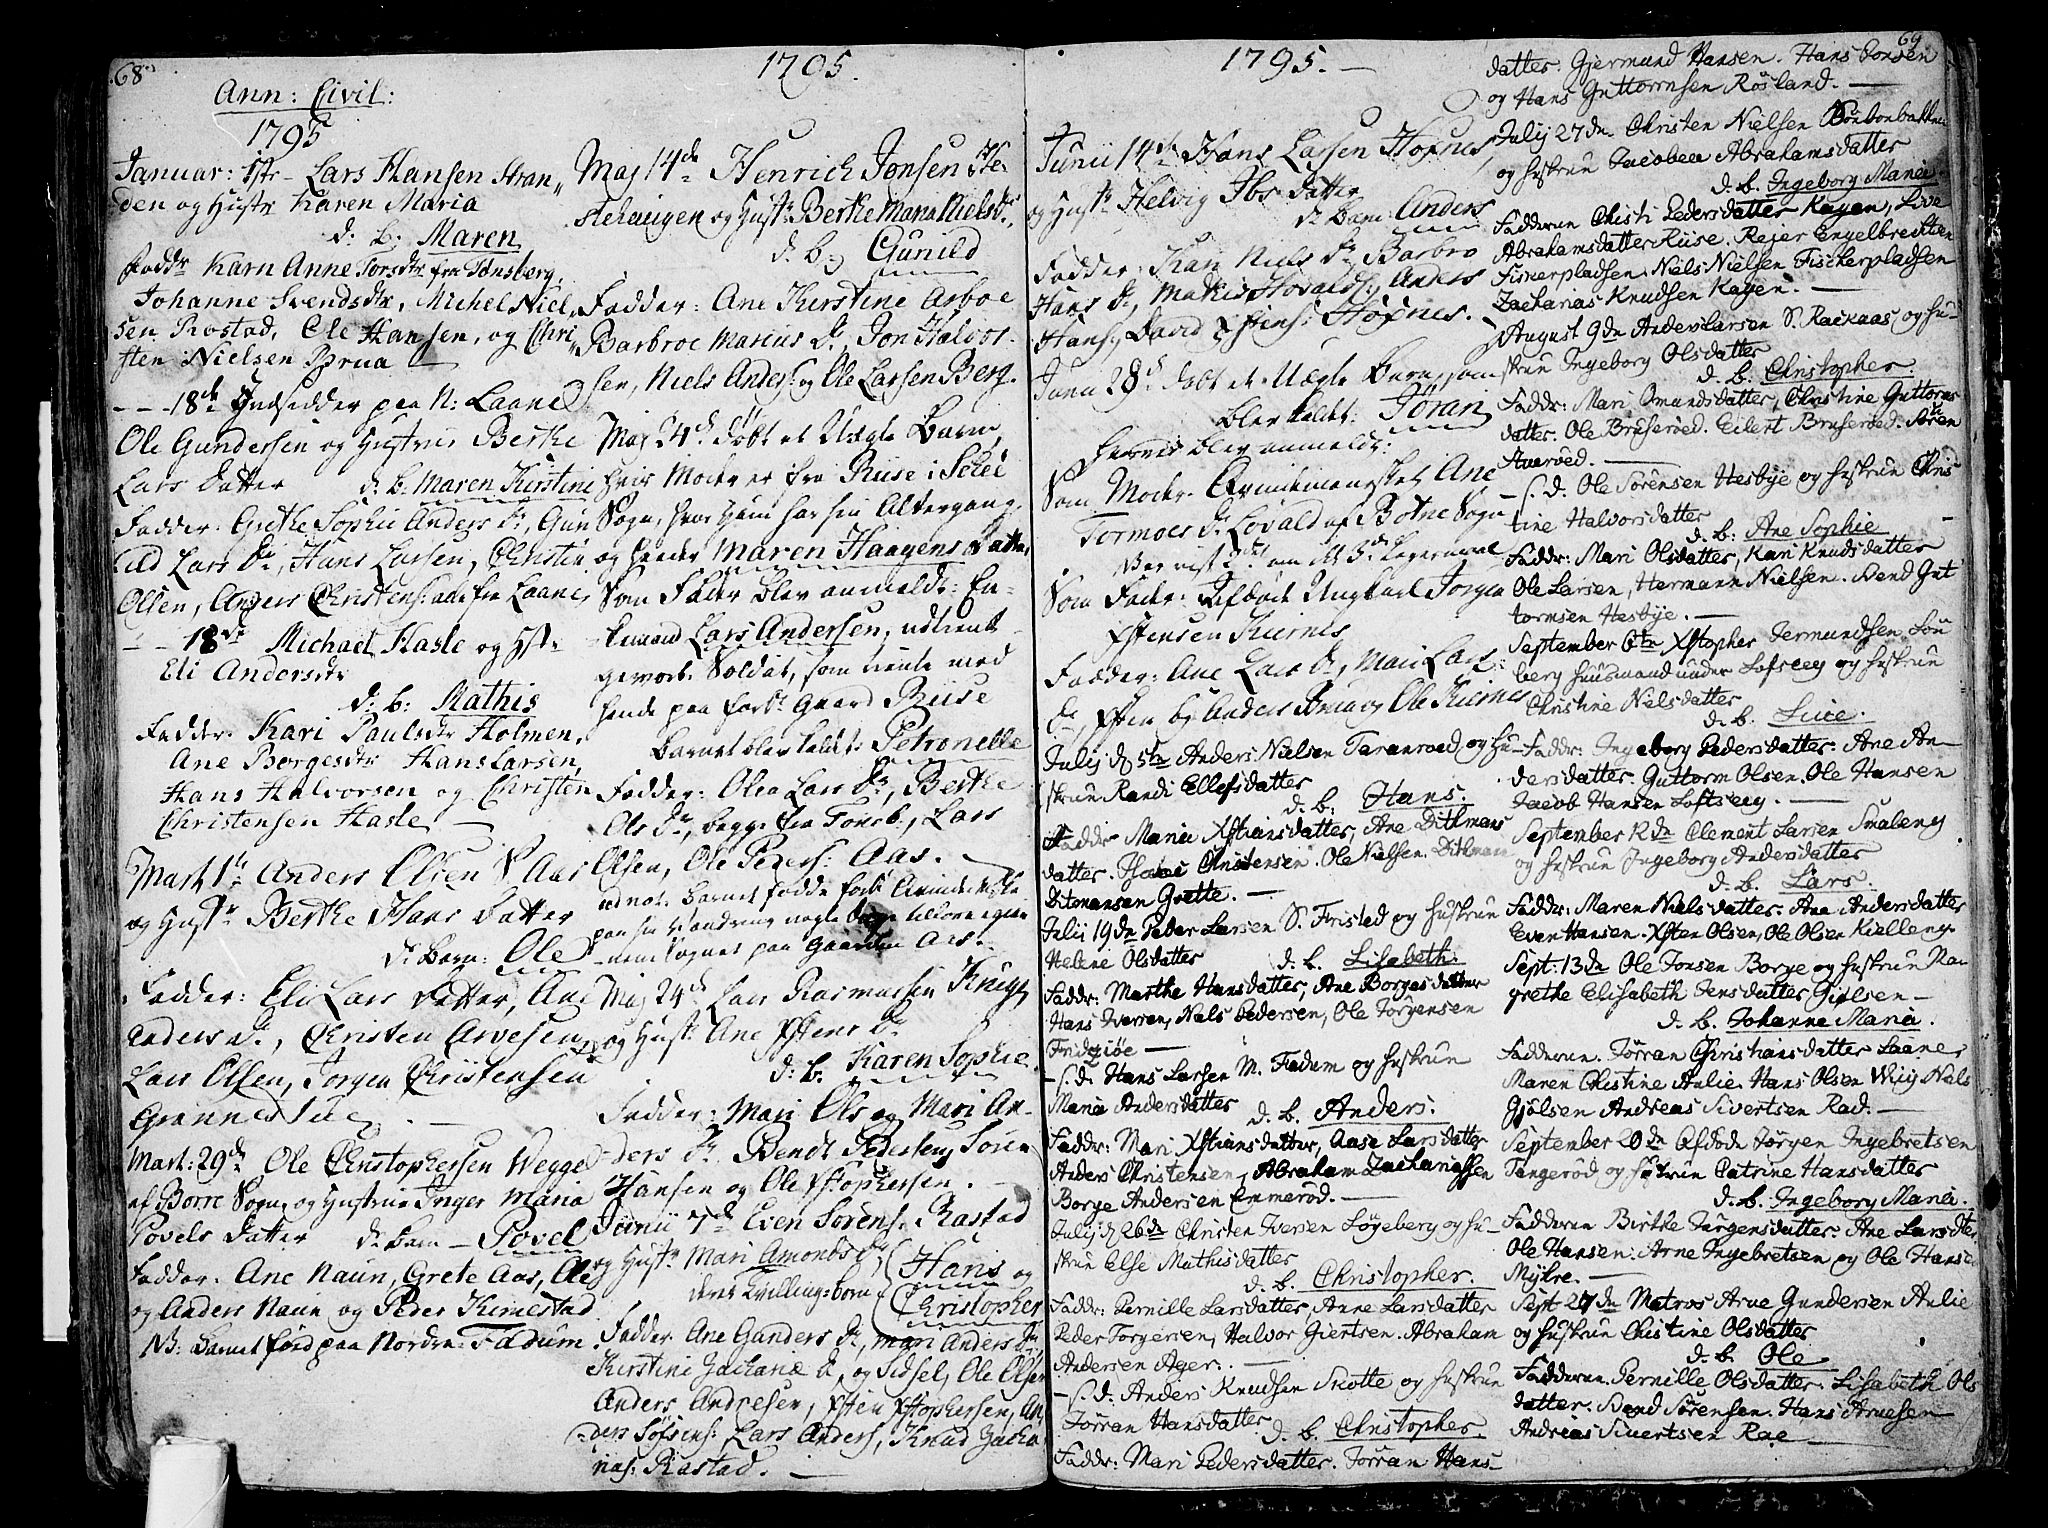 68
1795.
Ann: Civil:
1795
Januar: 1ste Lars Hansen Stran„
den og Hustr Karen Maria
d: b: Maren
Faddr Karn Anne Torsdtr fra Tønsberg,
Johanne Svendsdtr, Michel Niel„
sen Rostad, Ole Hansen, og Chri„
sten Nielsen Brua
- - - 18de Indsidder paa N: Laane
Ole Gundersen og Hustrue Berthe
Lars Datter d: b: Maren Kirstine
Fadder: Grethe Sophie Anders Dr, Gun
ild Lars Dr, Hans Larsen, Christen
Olsen, Anders Christens: alle fra Laane,
- - 18de Michael Hasle og Hst.
Eli Andersdtr
d: b: Mathis
Fadder: Kari Paulsdtr Holmen,
Ane Borgesdtr Hans Larsen,
Hans Halvorsen og Christen
Christensen Hasle
Mart. 1te Anders Olsen S Aas
og Hustr Berthe Hans Datter
Dr Barn: Ole
Fadder: Eli Lars Datter, Ane
Anders Dr, Christen Arvesen,
Lars Olsen, Jorgen Christensen
Grønnestue
Mart: 29de Ole Christophersen Wegge
af Borre Sogn, og Hustrue Inger Maria
Povels Datter dr Barn - Povel
Fadder: Ane Naun, Grete Aas, Ole
og Anders Naun og Peder Kimestad
NB: Barnet född paa Nordre Fadum.
Maj 14de Henrich Jonsen
og Hustr Berthe Maria Nielsdr,
d: b: Gunild
Fadder: Ane Kirstine Asboe
Barbroe Marius Dr, Jon Halvor-
sen, Niels Anders: og Ole Larsen Berg.
Maj 24de döbt et Uægte Barn,
hvis Moder er fra Riise i Scheé
Sogn, hvor hun har sin Altergang,
og heeder Maren Haagens Datter,
Som Fader blev anmeldt: En-
kemand Lars Andersen, udtient
gevorb. Soldat, som tiente med
hende paa forbte Gaard Riise
Barnet blev kaldet Petronelle
Fadder: Olea Lars Dr, Berthe
Ols Dr, begge fra Tønsb:, Lars
Olsen, Ole Peders: Aas.
paa sin Vandring nogle Dage
Sognet paa Gaarden Aas.
Maj 24de Lars Rasmussen
og Hustr Ane Xstens Dr
d: b. Karen Sophie
Fadder: Mari Ols og Mari An-
ders Dr, Bendt Pedersen, Sören
Hansen og Ole Xstophersen.
Junii 7de Even Sörens: Rastad
og Hustr Mari Amonds Dr,
deres Tvillingebörn Hans og
Christopher
Fadder. Ane Gunders Dr, Mari Anders Dr,
Kirstine Zachariæ D, og Sidsel, Ole Olsen
Anders Andresen, Xsten Xstophersen, An
ders , Lars Anders, Knud Zacha
rias: Rastad.
1795.
Junii 14de Hans Larsen Hofnes,
og Hustr Helvig Ibs Datter
dr Barn: Anders
Fadder: Kari Niels Dr Barbro
Hans Dr, Mathis Hovalds:, Anders
Hans:, David Xstens: Hofnes.
Junii 28de döbt et Uægte Barn, som
blev kaldt: Jöran
blev anmeldt:
Som Moder: Qvindemennesket Ane
Tormoes Dr Lovald af Botne Sogn
Som Fader: Ungkarl Jorgen
Xstensen Kiernes
Fadder: Ane Lars Dr, Mari Lars
Dr, Anders Brua og Ole Kiernes
Julij d 5te Anders Nielsen Taranroed, og Hu-
strue Randi Ellefsdatter
d. b. Hans.
Faddr Maria Xstiansdatter, Ane Ditlmans
datter. Christensen. Ole Nielsen. Ditlman
Ditmansen Grette.
Julij 19de Peder Larsen S. Fristed og Hustrue
Helene Olsdatter d. b. Lisabeth.
Faddr: Marthe Hansdatter, Ane Borgesdatter
Hans Iversen, Niels Pedersen, Ole Jörgensen
Fridsiøe
- S. d. Hans Larsen M. Fadem og Hustrue
Maria Andersdatter
d. b. Anders.
Faddr: Mari Xstiansdatter, Aase Larsdatter
Anders Christensen, Abraham Zachariassen
Borge Andersen Emmerød.
Julij d 26de Christen Iversen Løgeberg og Hu-
strue Else Mathisdatter
d. b. Christopher.
Faddr: Pernille Larsdatter, Anne Larsdatter
Peder Torgersen, Halvor Giertsen. Abraham
Andersen Ager.
- S. d. Anders Knudsen Skotte og Hustrue
Jørran Hansdatter
d. b. Christopher
Faddr: Mari Pedersdatter. Jorran Hans-
69.
datter. Gjermund Hansen. Hans Jonsen
og Hans Guttormsen Røsland.
Julij 27de Christen Nielsen
og Hustrue Jacobea Abrahamsdatter
d. b. Ingeborg Maria.
Fadderne Christi Pedersdatter Kagen, Live
Abrahamsdatter Riise. Reier Engelbrechten
Fiskerpladsen. Niels Nielsen Fischerpladsen
Zacharias Knudsen Kagen.
August 9de Anders Larsen S. Rackaas og Hu-
strue Ingeborg Olsdatter
d. b. Christopher.
Faddr: Mari Omundsdatter, Christine Guttorms
datter. Ole Bruserød. Eilert Bruserød. Sören
- S. d. Ole Sørensen Hesbye og Hustrue Chris
tine Halvorsdatter
d. b. Ane Sophie
Faddr: Mari Olsdatter, Kari Knudsdatter
Ole Larsen, Hermann Nielsen. Bend Gut
tormsen Hesbye.
September 6te Xstopher Jermundsen
berg Huusmand under Loftseey og Hustrue
Christine Nielsdatter
d. b. Lucie.
Faddr: Ingeborg Pedersdatter. Ane An-
dersdatter. Guttorm Olsen. Ole Hansen
Jacob Hansen Loftseey.
September 12de Clement Larsen Smaleng
og Hustrue Ingeborg Andersdatter
d. b. Lars.
Faddr: Maren Nielsdatter. Ane Andersdatter
Even Hansen. Xsten Olsen, Ole Olsen Kielleng.
Sept: 13de Ole Jonsen Borge og Hustrue Mar
grethe Elisabeth Jensdatter Giølsen
d. b. Johanne Maria.
Fadderne. Jørran Christiansdatter Laanes
Maren Christine Aulie. Hans Olsen Niels
Gjölsen Andreas Sivertsen Rad.
September 20de Afdöde Jørgen Ingebretsen
Tangerød og Hustrue Catrine Hansdatter
d. b. Ingeborg Maria.
Fadderne Birthe Jørgensdatter. Ane Larsdtr.
Ole Hansen. Arne Ingebretsen og Ole Hansen
Mykre.
Sept 27de Matros Arne Gundersen Aulie
og Hustrue Christine Olsdatter
d. b. Ole
Fadderne. Pernille Olsdatter. Lisabeth Ols
datter. Bend Sørensen. Hans Arnesen
Andreas Sivertsen Rae